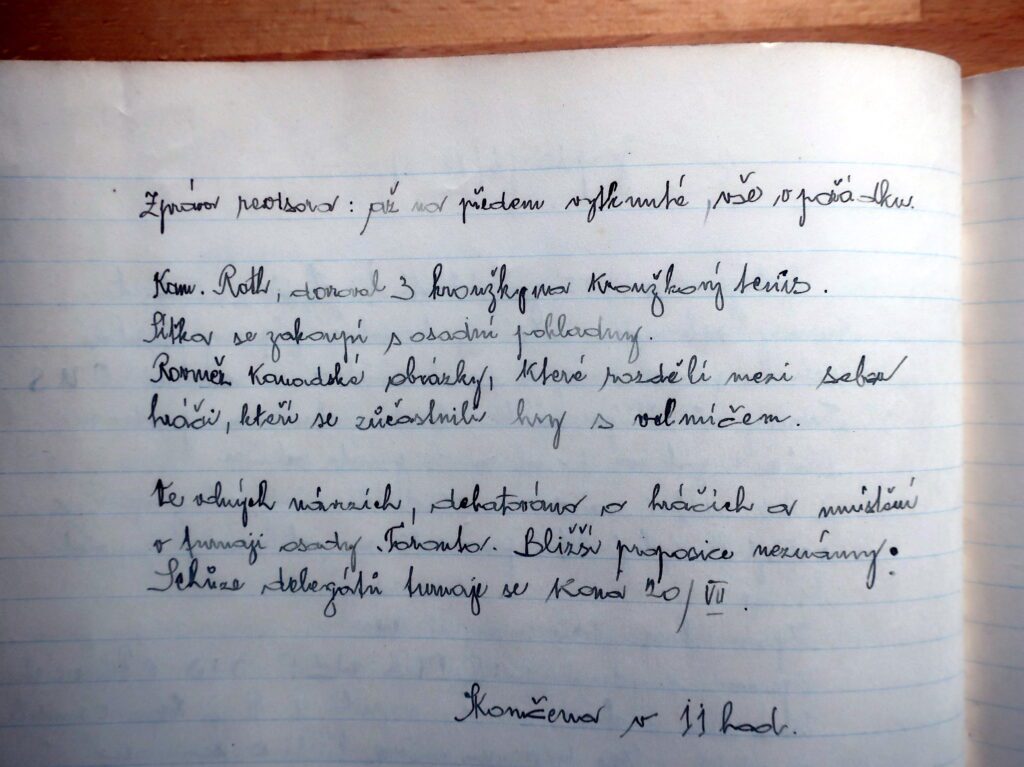 Zpráva revisora: až na předem vytknuté, vše v pořádku.
Kam. Roth, daroval 3 kroužky na Kroužkový tenis.
Síťka se zakoupí s osadní pokladny.
Rovněž Kanadské obrázky, které rozdělí mezi sebou
hráči, kteří se zůčastnili hry s volmíčem.
Ve volných návrzích, debatováno o hráčích a umístění
v turnaji osady Toronto. Bližší proposice neznámy.
Schůze delegátů turnaje se Koná 20/VII.
Skončena v 11 hod.